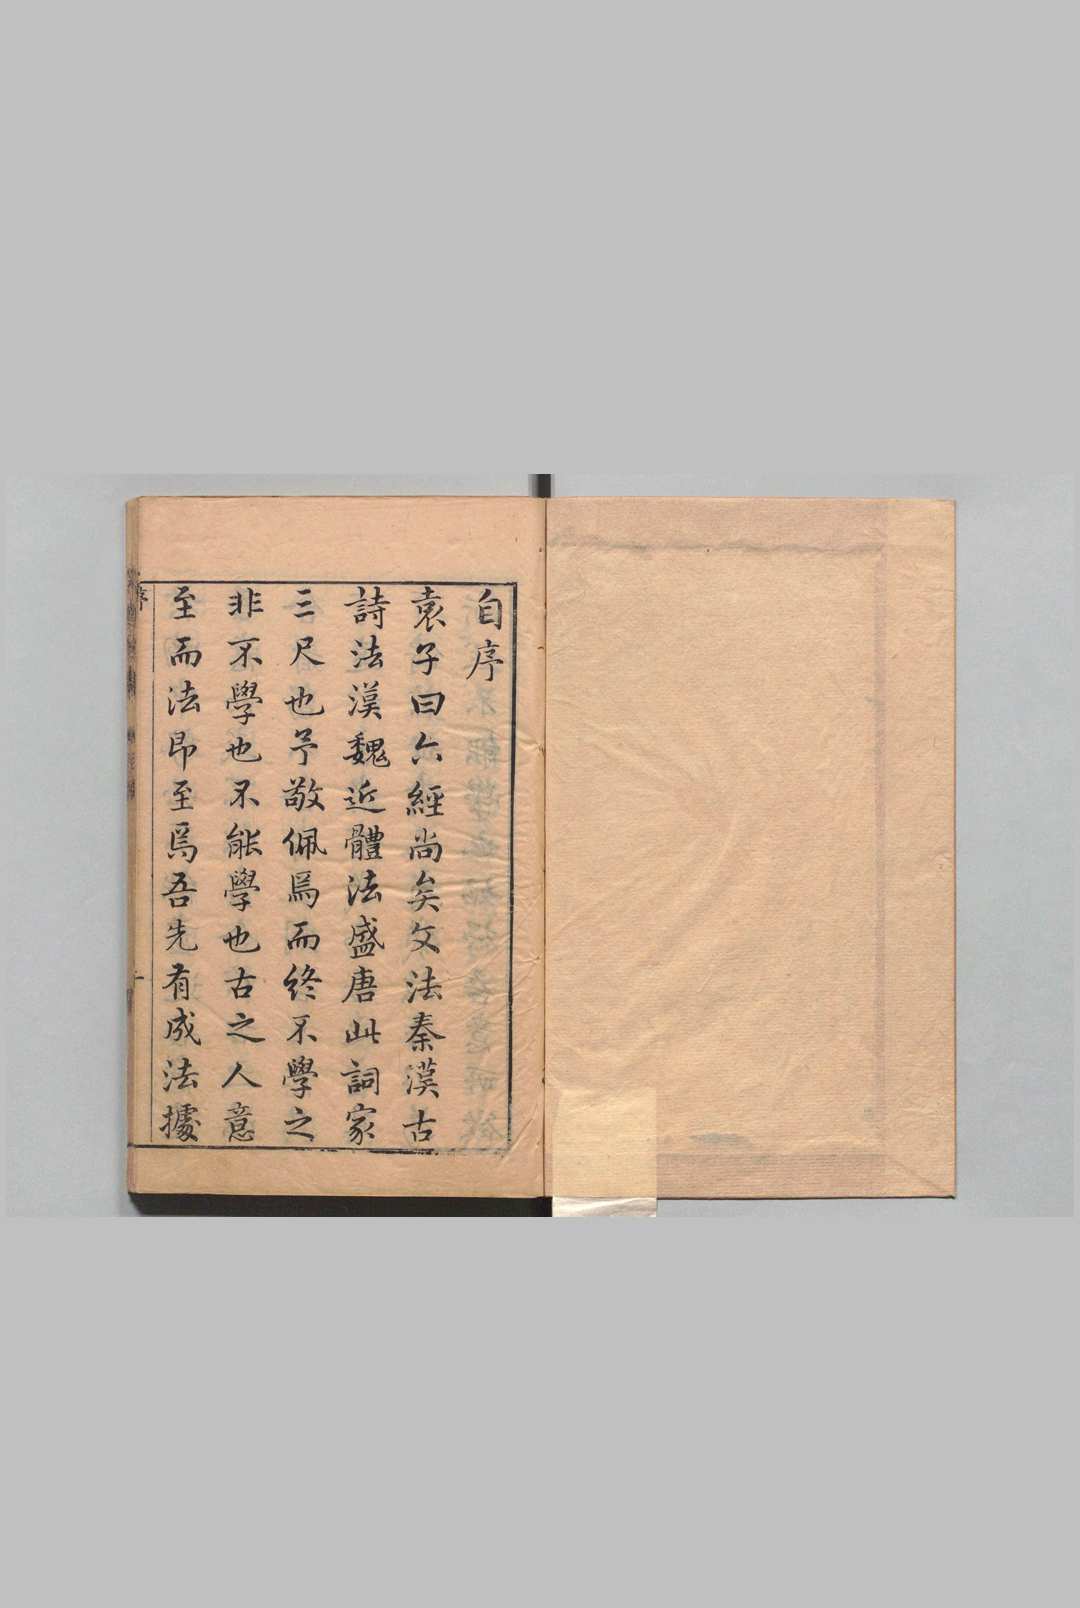 自序
袁子曰六經尚矣文法秦漢古
詩法漢魏近體法盛唐此詞家
三尺也予敬佩焉而終不學之
非不學也不能學也古之人意
至而法即至焉吾先有成法據
序